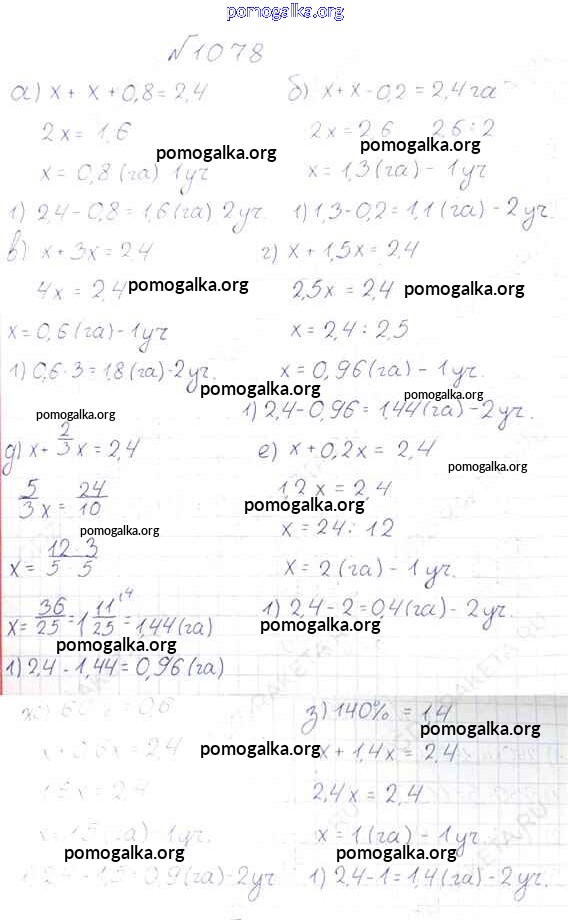 pomogalka.org
№1078
а) x + x + 0,8 = 2,4
2x = 1,6
pomogalka.org
x = 0,8 (га) 1уч
1) 2,4 - 0,8 = 1,6 (га) 2уч.
б) x + x - 0,2 = 2,4 га
2x = 2,6 2,6 : 2
pomogalka.org
x = 1,3 (га) - 1уч
1) 1,3 - 0,2 = 1,1 (га) - 2уч.
в) x + 3x = 2,4
4x = 2,4
pomogalka.org
x = 0,6 (га) - 1уч
1) 0,6 · 3 = 1,8 (га) - 2уч.
pomogalka.org
г) x + 1,5x = 2,4
2,5x = 2,4
pomogalka.org
x = 2,4 : 2,5
x = 0,96 (га) - 1уч.
pomogalka.org
1) 2,4 - 0,96 = 1,44 (га) - 2уч.
pomogalka.org
д) x + 2/3 x = 2,4
5/3 x = 24/10
pomogalka.org
x = 12/5 3/5
x = 36/25 = 1 11/25 = 1,44 (га)
pomogalka.org
1) 2,4 - 1,44 = 0,96 (га)
е) x + 0,2x = 2,4
pomogalka.org
1,2x = 2,4
pomogalka.org
x = 24 : 12
x = 2 (га) - 1уч.
1) 2,4 - 2 = 0,4 (га) - 2уч.
pomogalka.org
ж) 60% = 0,6
x + 0,6x = 2,4
pomogalka.org
= 2,4
x = 1,5 (га) - 1уч.
pomogalka.org
1) 2,4 - 1,5 = 0,9 (га) - 2уч
з) 140% = 1,4
pomogalka.org
x + 1,4x = 2,4
2,4x = 2,4
x = 1 (га) - 1уч.
pomogalka.org
1) 2,4 - 1 = 1,4 (га) - 2уч.